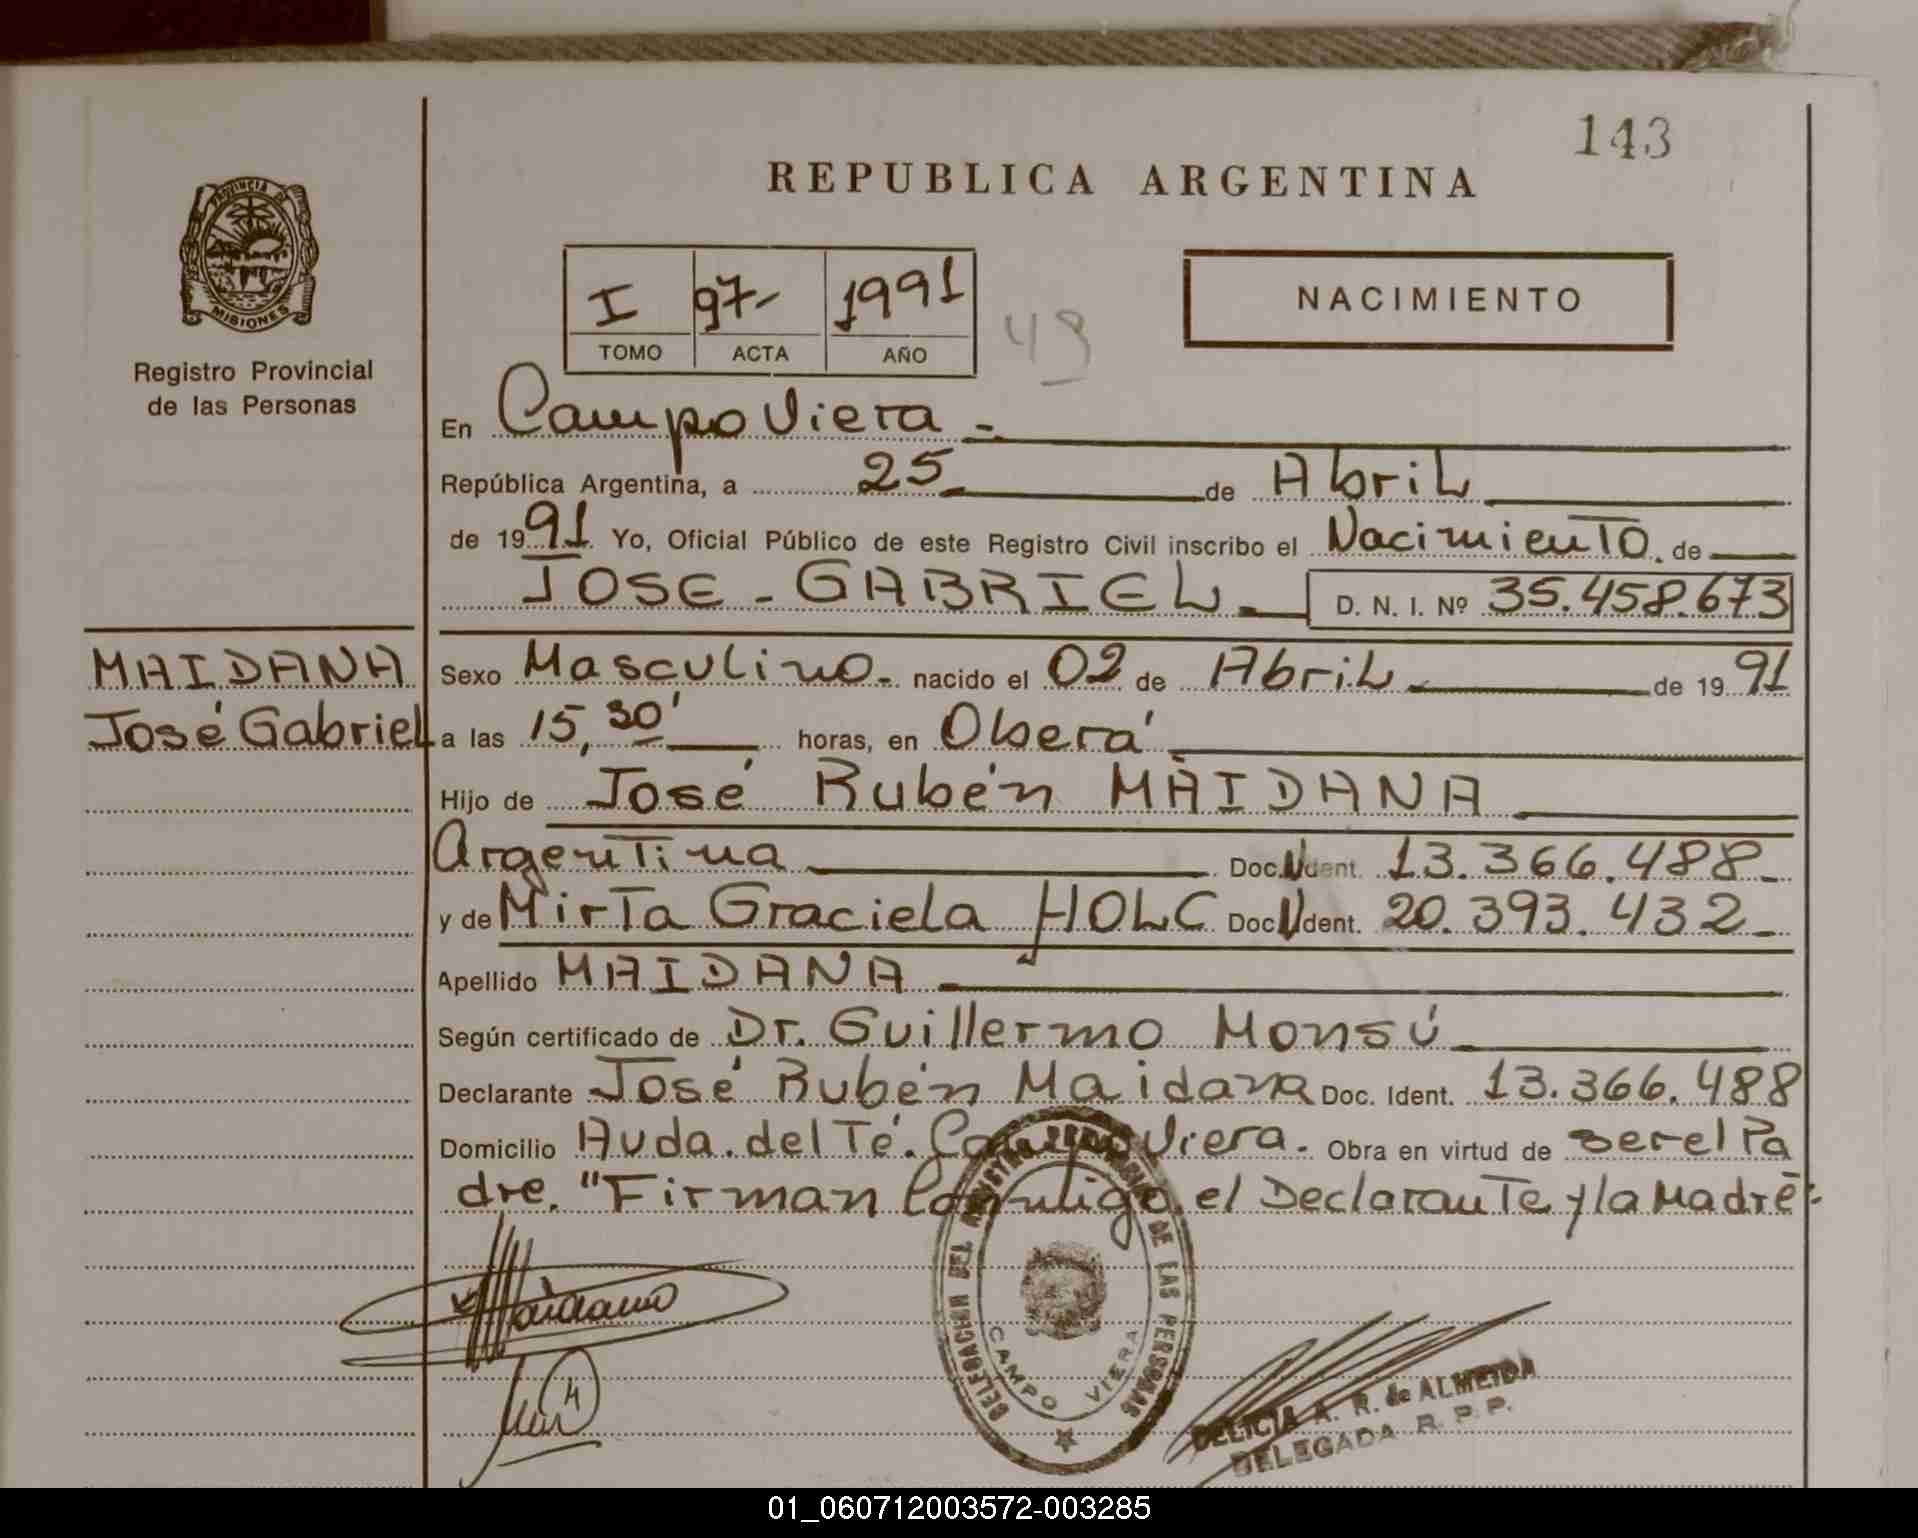 143
REPUBLICA ARGENTINA
PROVINCIA DE
MISIONES
Registro Provincial
de las Personas
I 97- 1991
TOMO ACTA AÑO
49
NACIMIENTO
En Campo Viera -
República Argentina, a 25 de Abril
de 1991. Yo, Oficial Público de este Registro Civil inscribo el Nacimiento. de
JOSE - GABRIEL D. N. I. Nº 35.458.673
MAIDANA
José Gabriel
Sexo Masculino. nacido el 02 de Abril de 1991
a las 15,30' horas, en Oberá
Hijo de José Rubén MAIDANA
Argentina Doc. Ident. 13.366.488
y de Mirta Graciela HOLC Doc. Ident. 20.393.432
Apellido MAIDANA
Según certificado de Dr. Guillermo Monsú
Declarante José Rubén Maidana Doc. Ident. 13.366.488
Domicilio Avda. del Té. Campo Viera. Obra en virtud de ser el Pa
dre. "Firman Conmigo el Declarante y la Madre".
Maidana
DELEGACION DEL REGISTRO PROVINCIAL DE LAS PERSONAS
CAMPO VIERA
DELICIA A. R. de ALMEIDA
DELEGADA R. P. P.
01_060712003572-003285